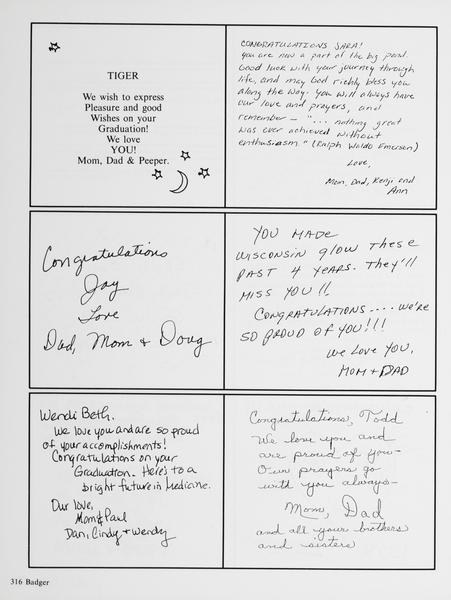 TIGER
We wish to express
Pleasure and good
Wishes on your
Graduation!
We love
YOU!
Mom, Dad & Peeper.
CONGRATULATIONS SARA!
You are now a part of the big pond.
Good luck with your journey through
life, and may God richly bless you
along the way. You will always have
our love and prayers, and
remember - "... nothing great
was ever achieved without
enthusiasm." (Ralph Waldo Emerson)
Love,
Mom, Dad, Kenji and
Ann
Congratulations
Jay
Love
Dad, Mom + Doug
YOU MADE
WISCONSIN glow THESE
PAST 4 YEARS. THEY'LL
MISS YOU!!
CONGRATULATIONS.... WE'RE
SO PROUD OF YOU!!!
We Love YOU,
MOM + DAD
Wendi Beth,
We love you and are so proud
of your accomplishments!
Congratulations on your
Graduation. Here's to a
bright future in Medicine.
Our love,
Mom & Paul
Dan, Cindy + Wendy
Congratulations, Todd
We love you and
are proud of you-
Our prayers go
with you always-
Mom, Dad
and all your brothers
and sisters
316 Badger